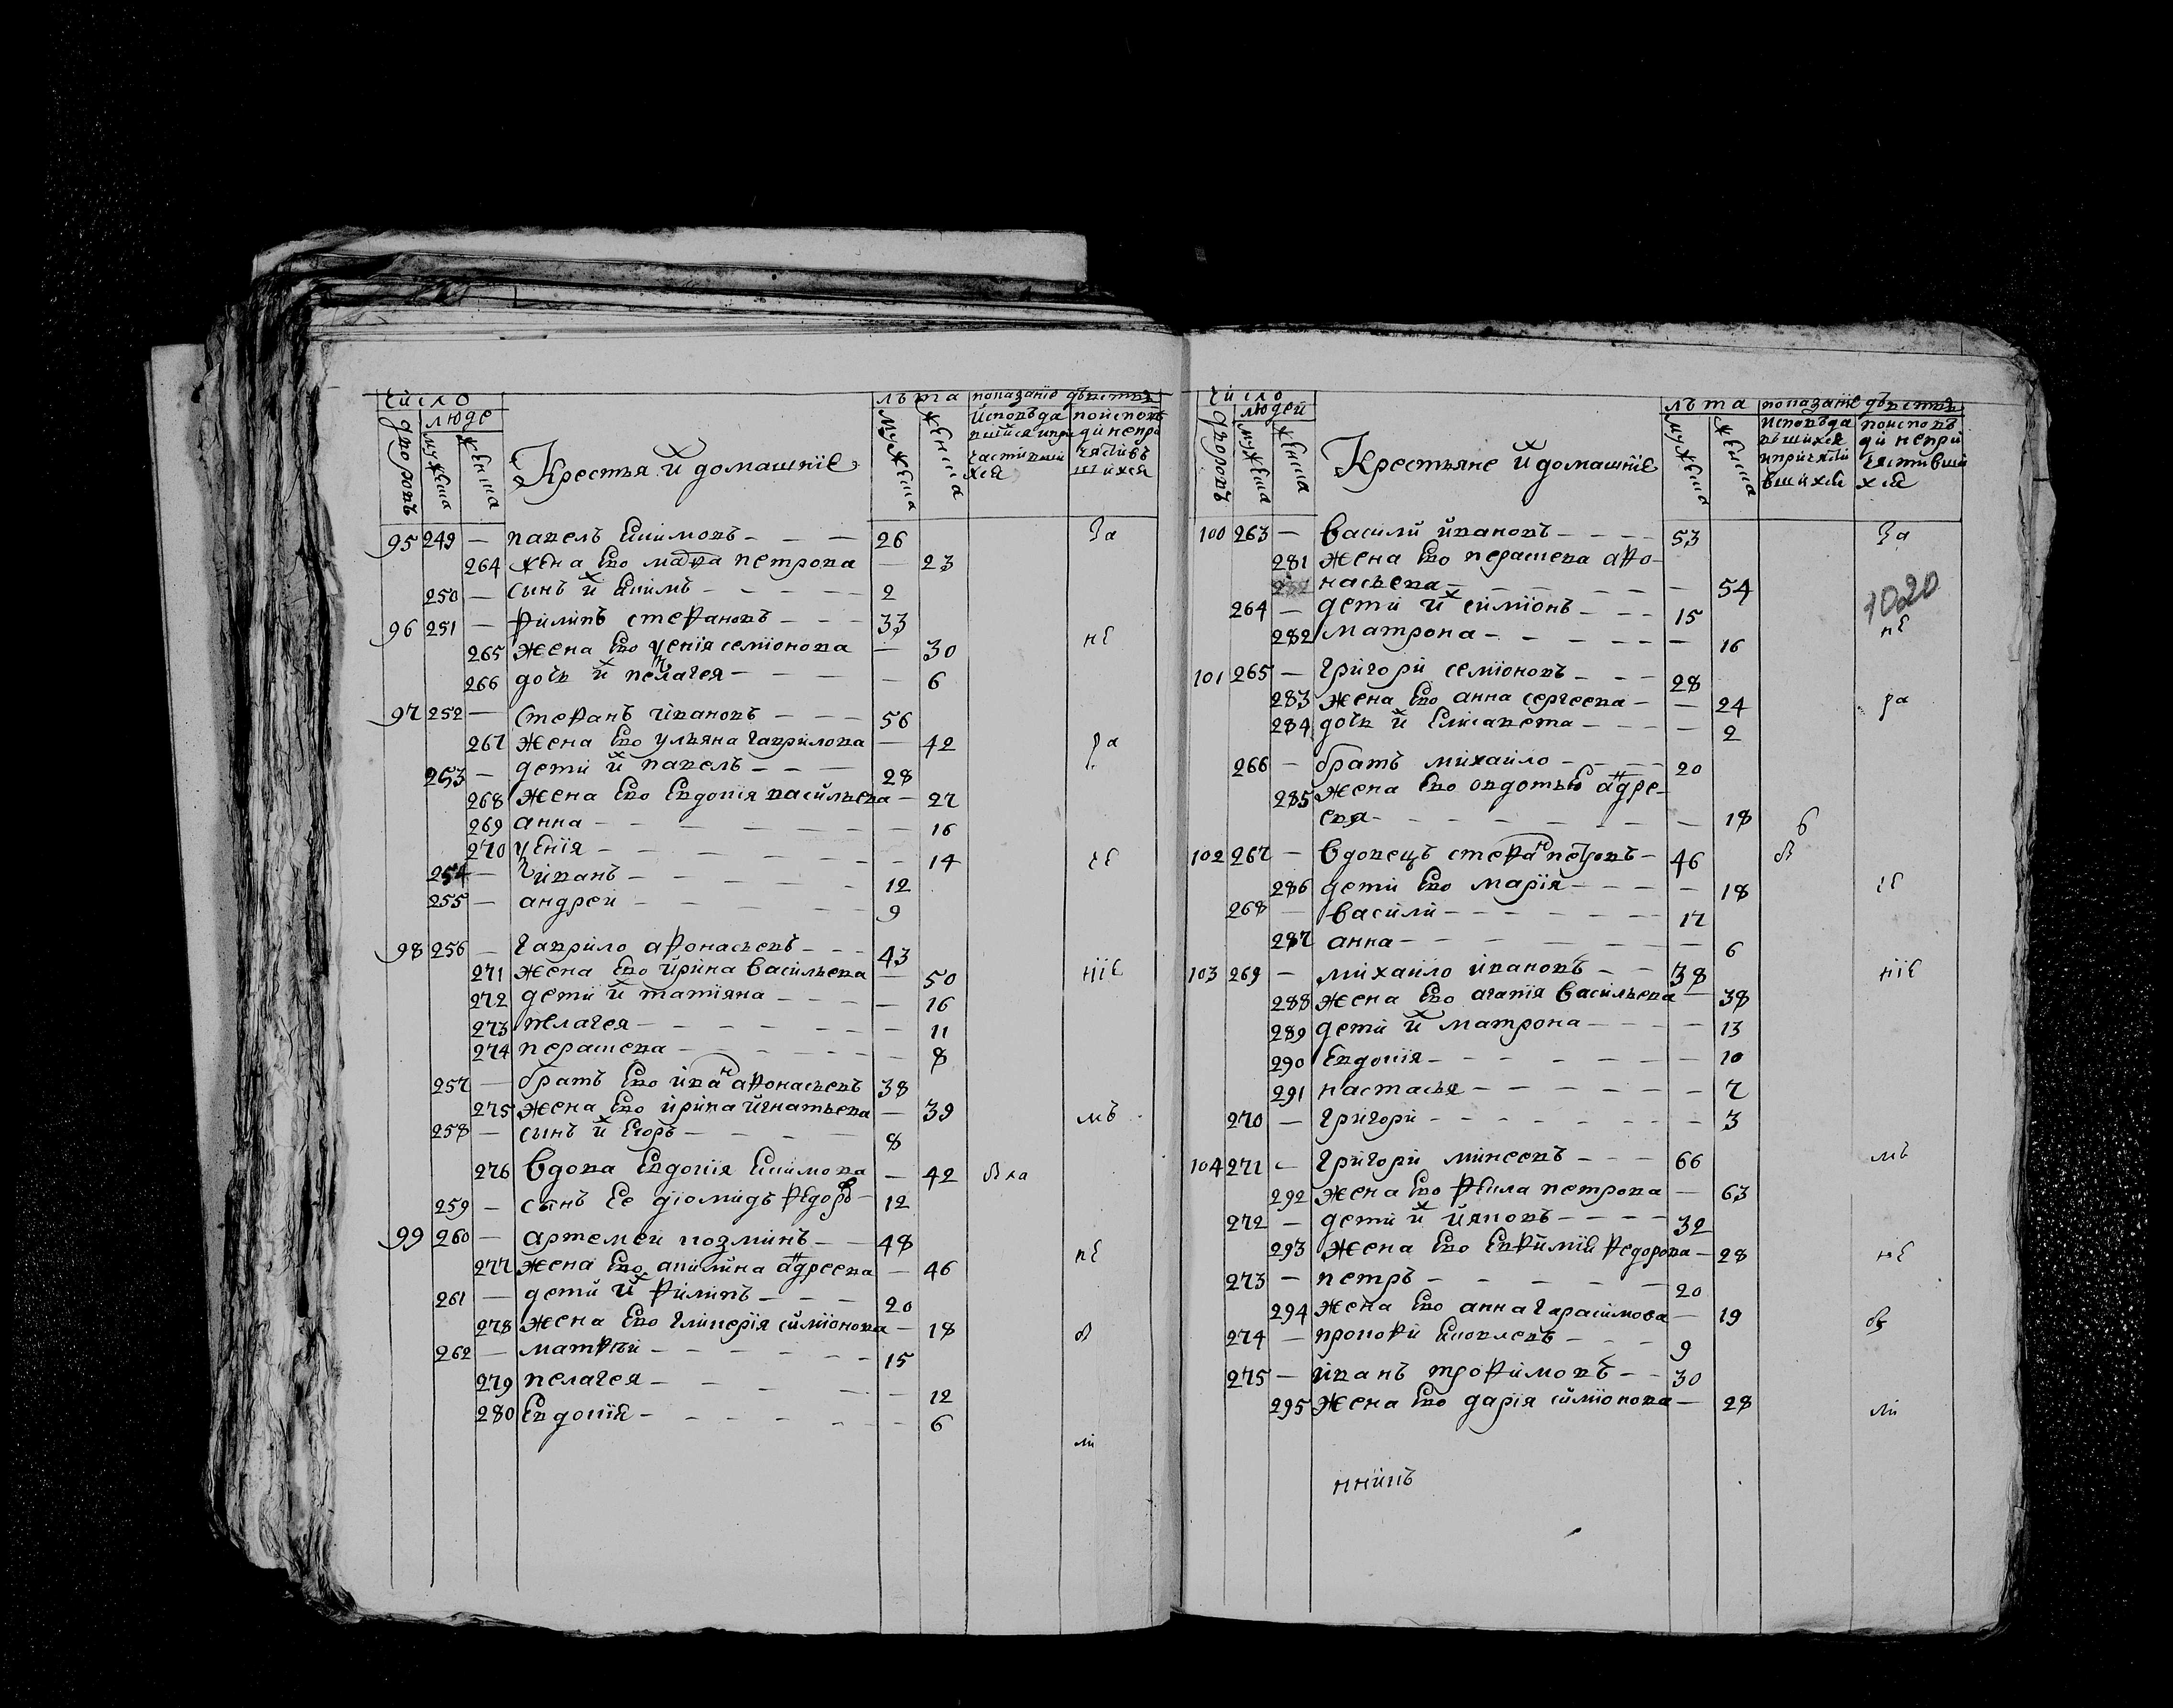 число
лѣта показание дѣиства
дворовъ
люде
мужеска
женска
Крестья й домашние
мужеска
женска
95 249 — павелъ Екимовъ — — — 26
За
264 жена Ево мавра петрова — 23
250 — сынъ йх Екимъ — — — — — 2
96 251 — филипъ стефановъ — — — 33
не
265 жена Ево ѯения семионова — 30
266 дочь йх пелагея — — — — — 6
97 252 — стефанъ ивановъ — — — 56
267 жена Ево ульяна гаврилова — 42
ра
253 — дети йх павелъ — — — 28
268 жена Ево Евдокия васильева — 27
269 анна — — — — — — — 16
270 ѯения — — — — — — — 14
че
254 — иванъ — — — — — 12
255 — андреи — — — — — 9
98 256 — гаврило афонасьевъ — — — 43
271 жена Ево ирина васильева — 50
ние
272 дети йх татияна — — — — 16
273 пелагея — — — — — — 11
274 парасщева — — — — — — 8
257 — братъ Ево иванъ афонасьевъ 38
275 жена Ево ирина игнатьева — 39
мъ
258 — сынъ йх Егоръ — — — — 8
276 вдова Евдокия Екимова — 42
259 — сынъ Ее диомидъ федоровъ — 12
99 260 — артемеи козминъ — — 48
277 жена Ево акилина андреева — 46
не
261 — дети йх филипъ — — — 20
278 жена Ево гликерия симионова — 18
262 — матфеи — — — — — — 15
279 пелагея — — — — — — 12
280 Евдокия — — — — — — 6
ли
число
лѣта показание дѣиства
дворовъ
людей
мужеска
женска
Крестьяне й домашние
мужеска
женска
исповѣда
вшихся
и причасти
вшихся
100 263 — василий ивановъ — — — — 53
За
281 жена Ево парасщева афо-
насьева — — — — — — — 54
1020
264 — дети йх симионъ — — — 15
282 матрона — — — — — — — 16
не
101 265 — григорий семионовъ — — — 28
283 жена Ево анна сергеева — — 24
ра
284 дочь йх Елисавета — — — — 2
266 — братъ михаило — — — — 20
285 жена Ево овдотья андре-
ева — — — — — — — — 18
102 267 — вдовецъ стефанъ петровъ — 46
286 дети Ево мария — — — — 18
че
268 — василии — — — — — — 17
287 анна — — — — — — — 6
103 269 — михаило ивановъ — — 38
ние
288 жена Ево агапия васильева — 38
289 дети йх матрона — — — — 13
290 Евдокия — — — — — — — 10
291 настасья — — — — — — 7
270 — григорий — — — — — — — 3
104 271 — григорий минеевъ — — — 66
мъ
292 жена Ево фекла петрова — 63
272 — дети йх ияковъ — — — — 32
293 жена Ево Евфимия федорова — 28
не
273 — петръ — — — — — — 20
294 жена Ево анна гарасимова — 19
274 — прокофий яковлевъ — — — 9
275 — иванъ трофимовъ — — 30
295 жена Ево дария симионова — 28
ли